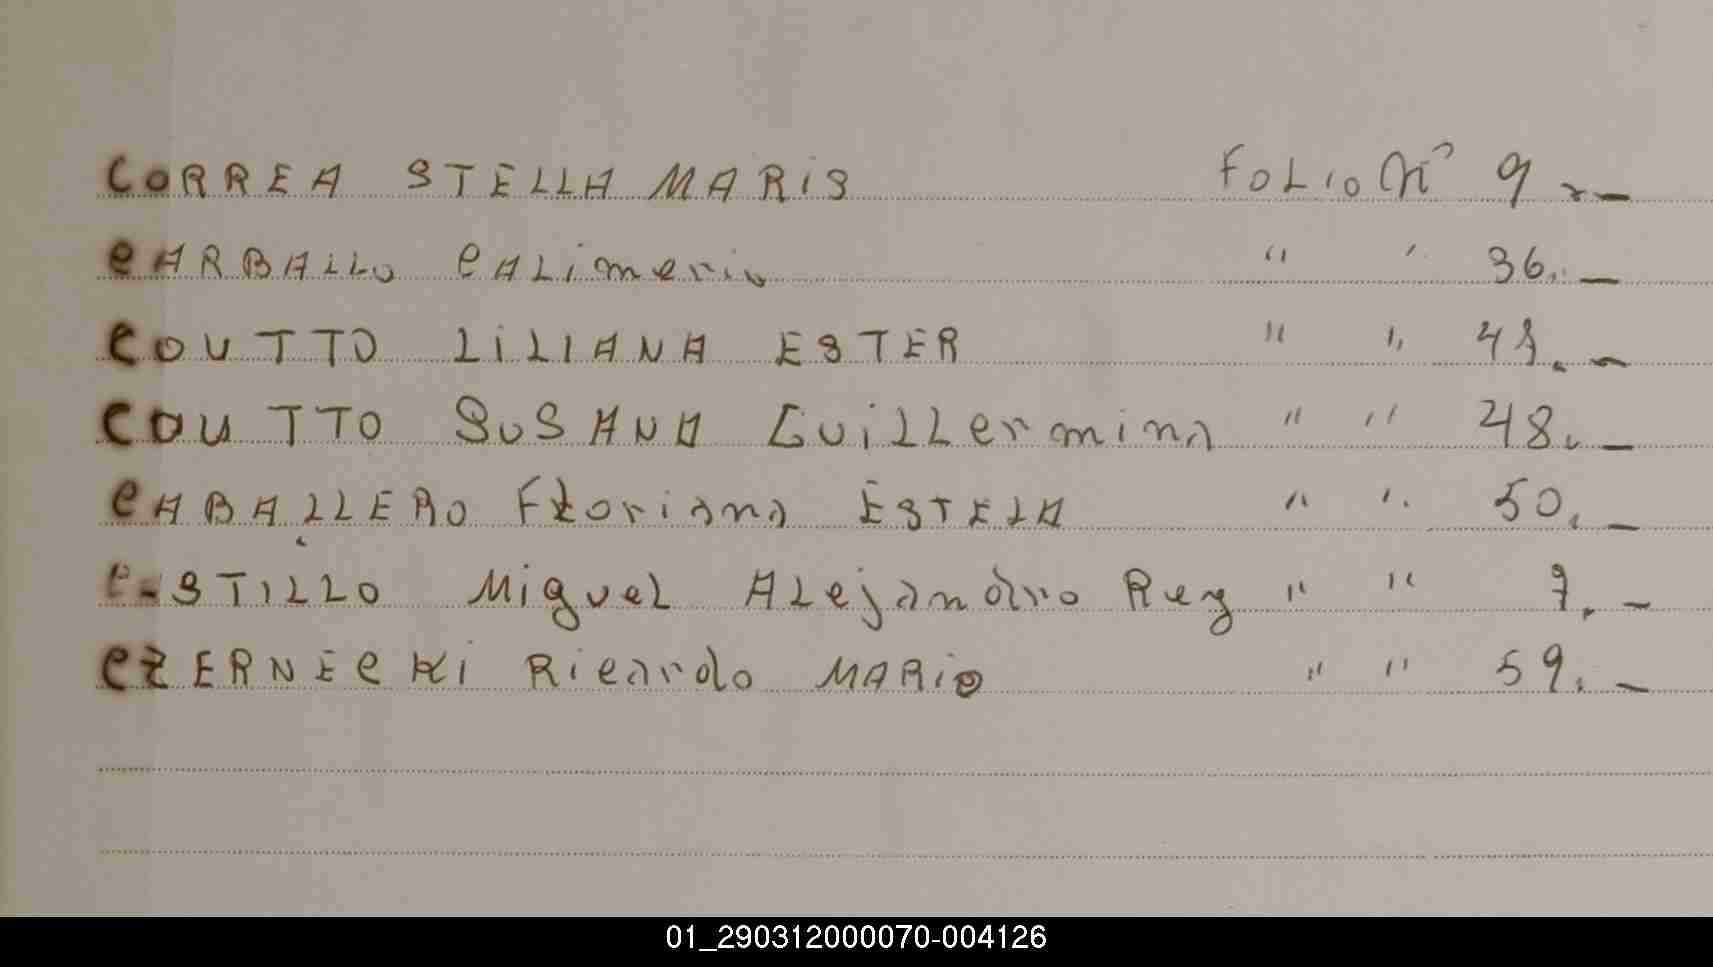 CORREA STELLA MARIS FOLIO Nº 9.—
CARBALLO CALimerio " " 36.—
COUTTO LiLIANA ESTER " " .—
COUTTO SUSANA GuiLLermina " " 48.—
CABALLERO FLoriana ESTELA " " 50.—
CASTILLO Miguel ALejandro Rey " " 7.—
CZERNECKi Ricardo MARio " " 59.—
01_290312000070-004126